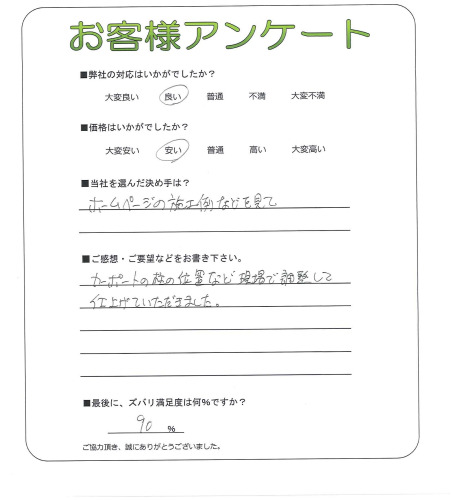 お客様アンケート
■弊社の対応はいかがでしたか？
大変良い 良い 普通 不満 大変不満
■価格はいかがでしたか？
大変安い 安い 普通 高い 大変高い
■当社を選んだ決め手は？
ホームページの施工例などを見て
■ご感想・ご要望などをお書き下さい。
カーポートの柱の位置など現場で調整して
仕上げていただきました。
■最後に、ズバリ満足度は何%ですか？
90 %
ご協力頂き、誠にありがとうございました。